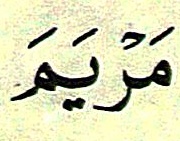 مَرْيَمَ